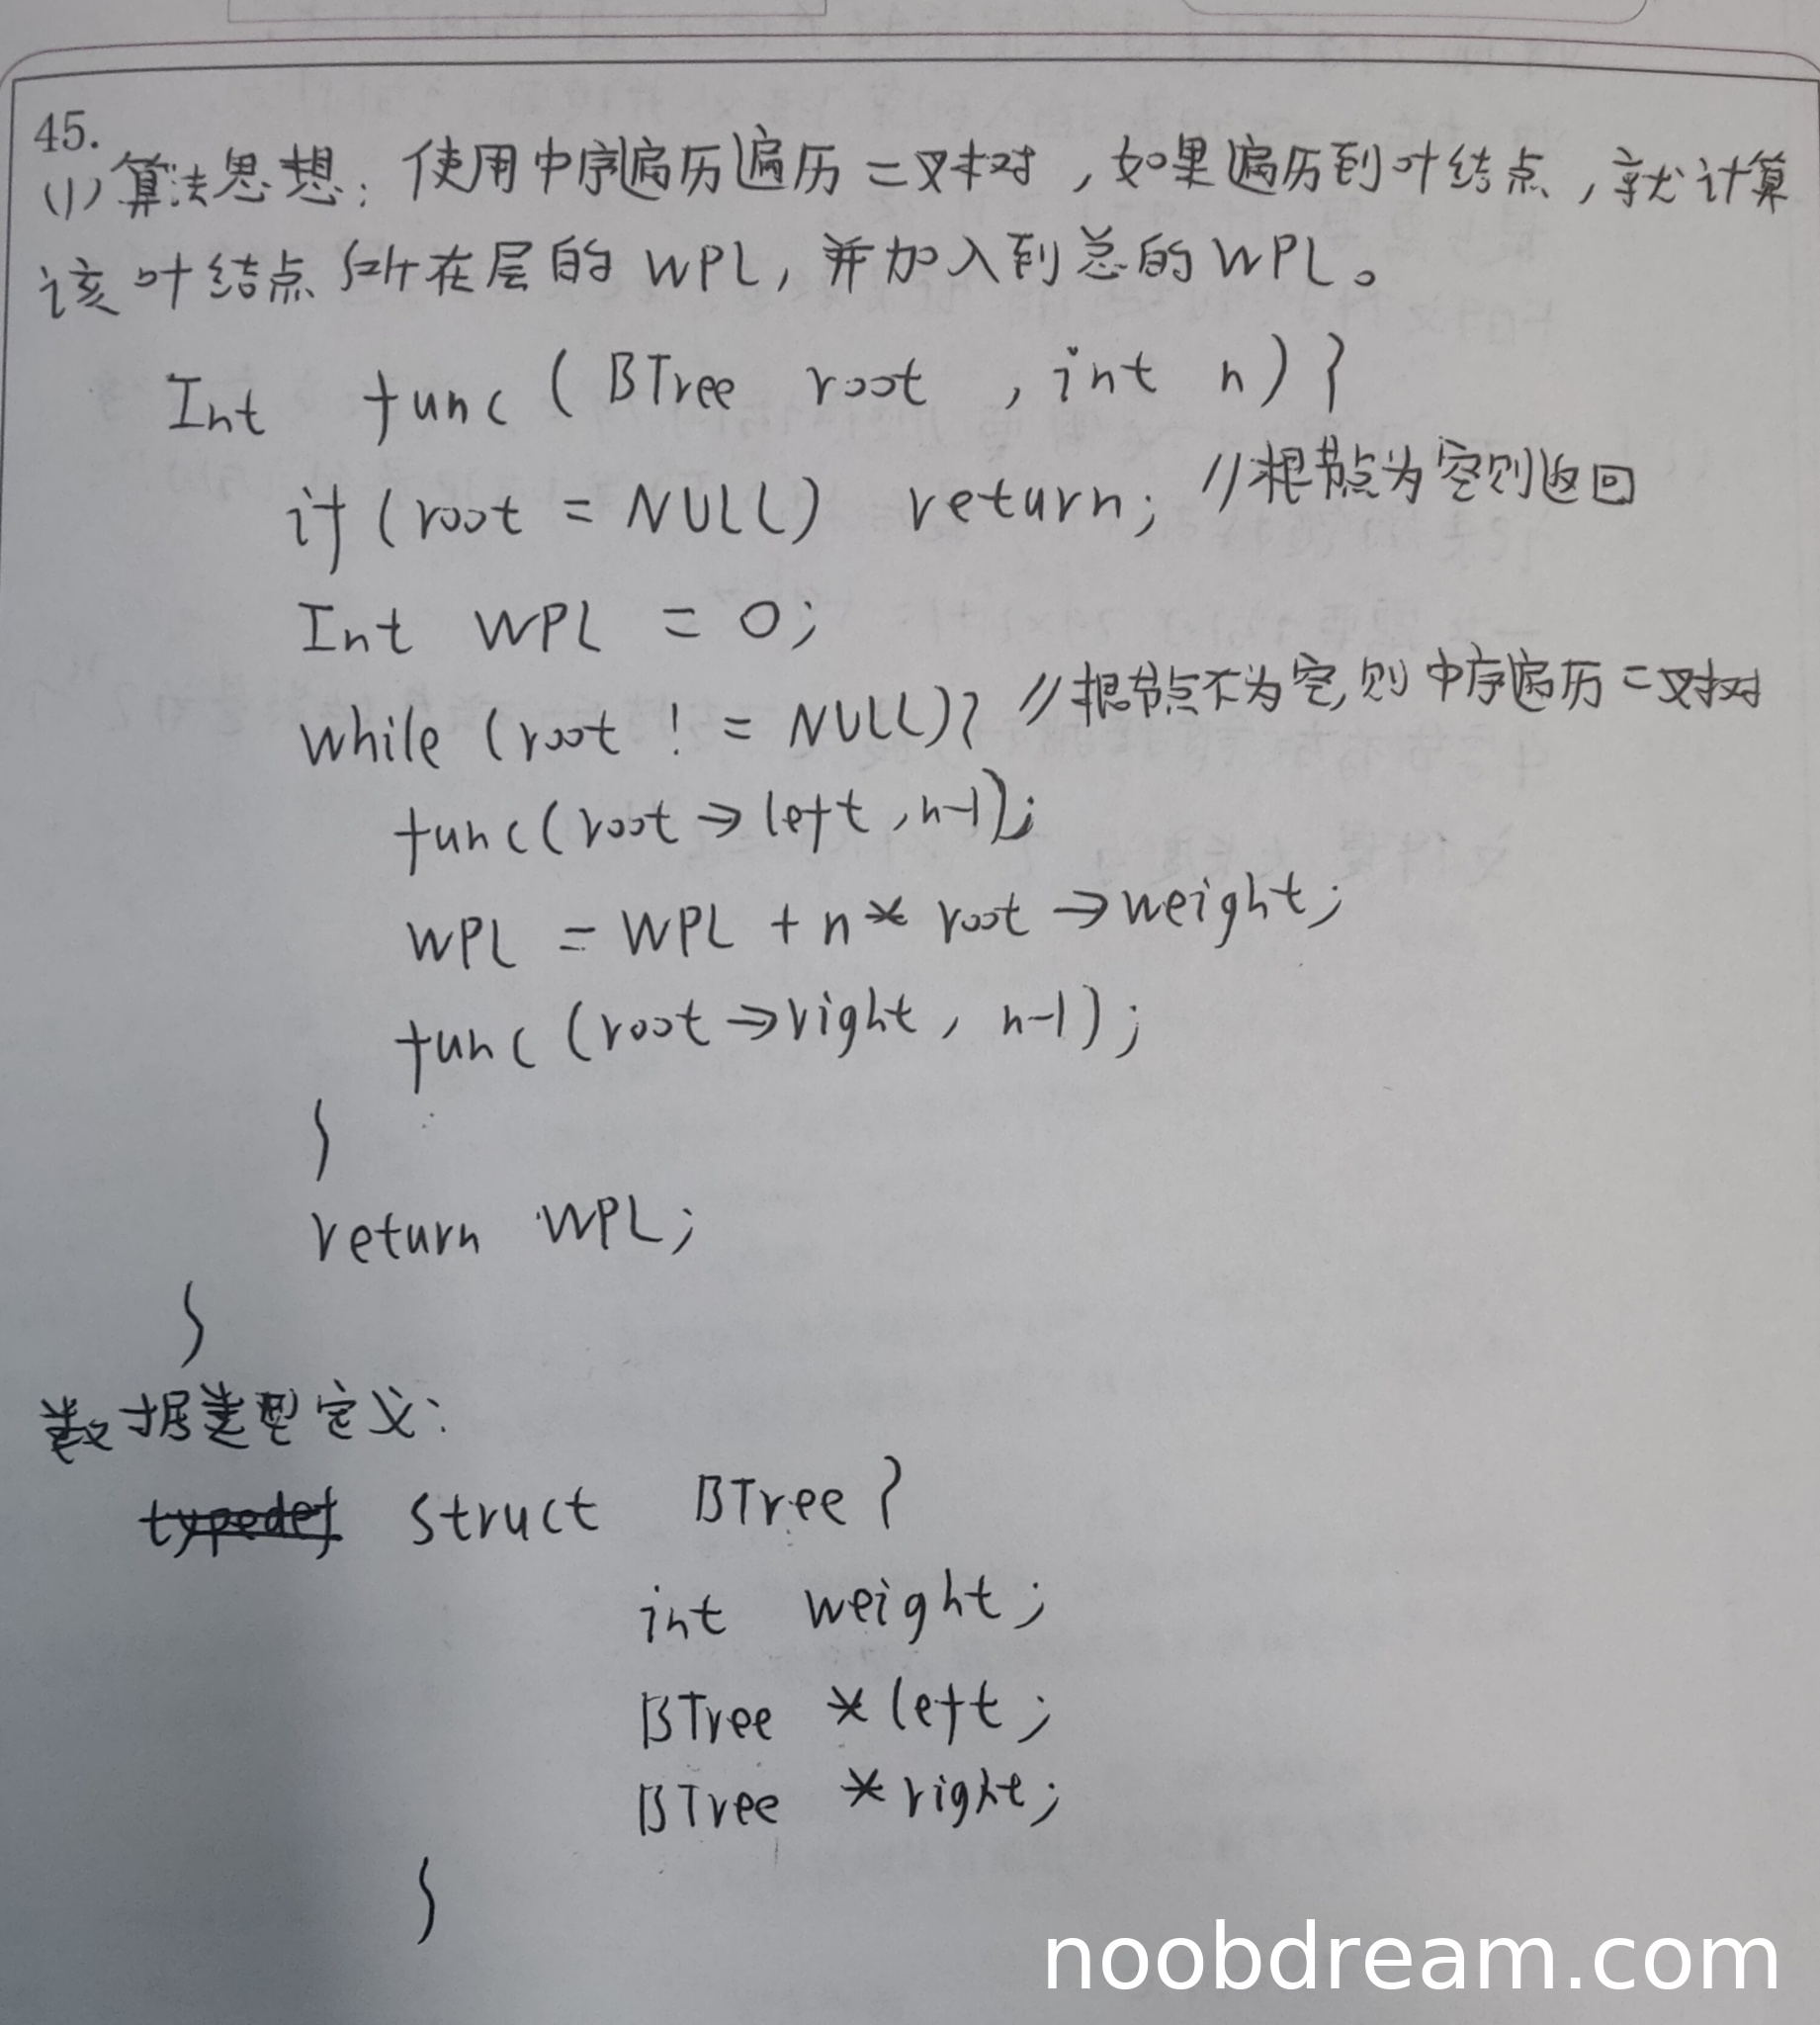 45.
(1)算法思想：使用中序遍历遍历二叉树，如果遍历到叶结点，就计算
该叶结点所在层的WPL，并加入到总的WPL。
Int func(BTree root, int n){
if(root = NULL) return; //根节点为空则返回
Int WPL = 0;
while(root != NULL){ //根节点不为空,则中序遍历二叉树
func(root→left, n-1);
WPL = WPL + n* root→weight;
func(root→right, n-1);
}
return WPL;
}
数据类型定义：
typedef struct BTree{
int weight;
BTree *left;
BTree *right;
}
noobdream.com